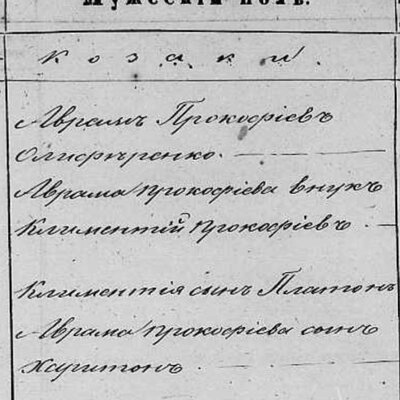 Мужескій полъ.
Козаки.
Аврамъ Прокофіевъ
Олиференко.
Аврама Прокофіева внукъ
Климентій Прокофіевъ.
Климентія сынъ Платонъ
Аврама Прокофіева сынъ
Харитонъ